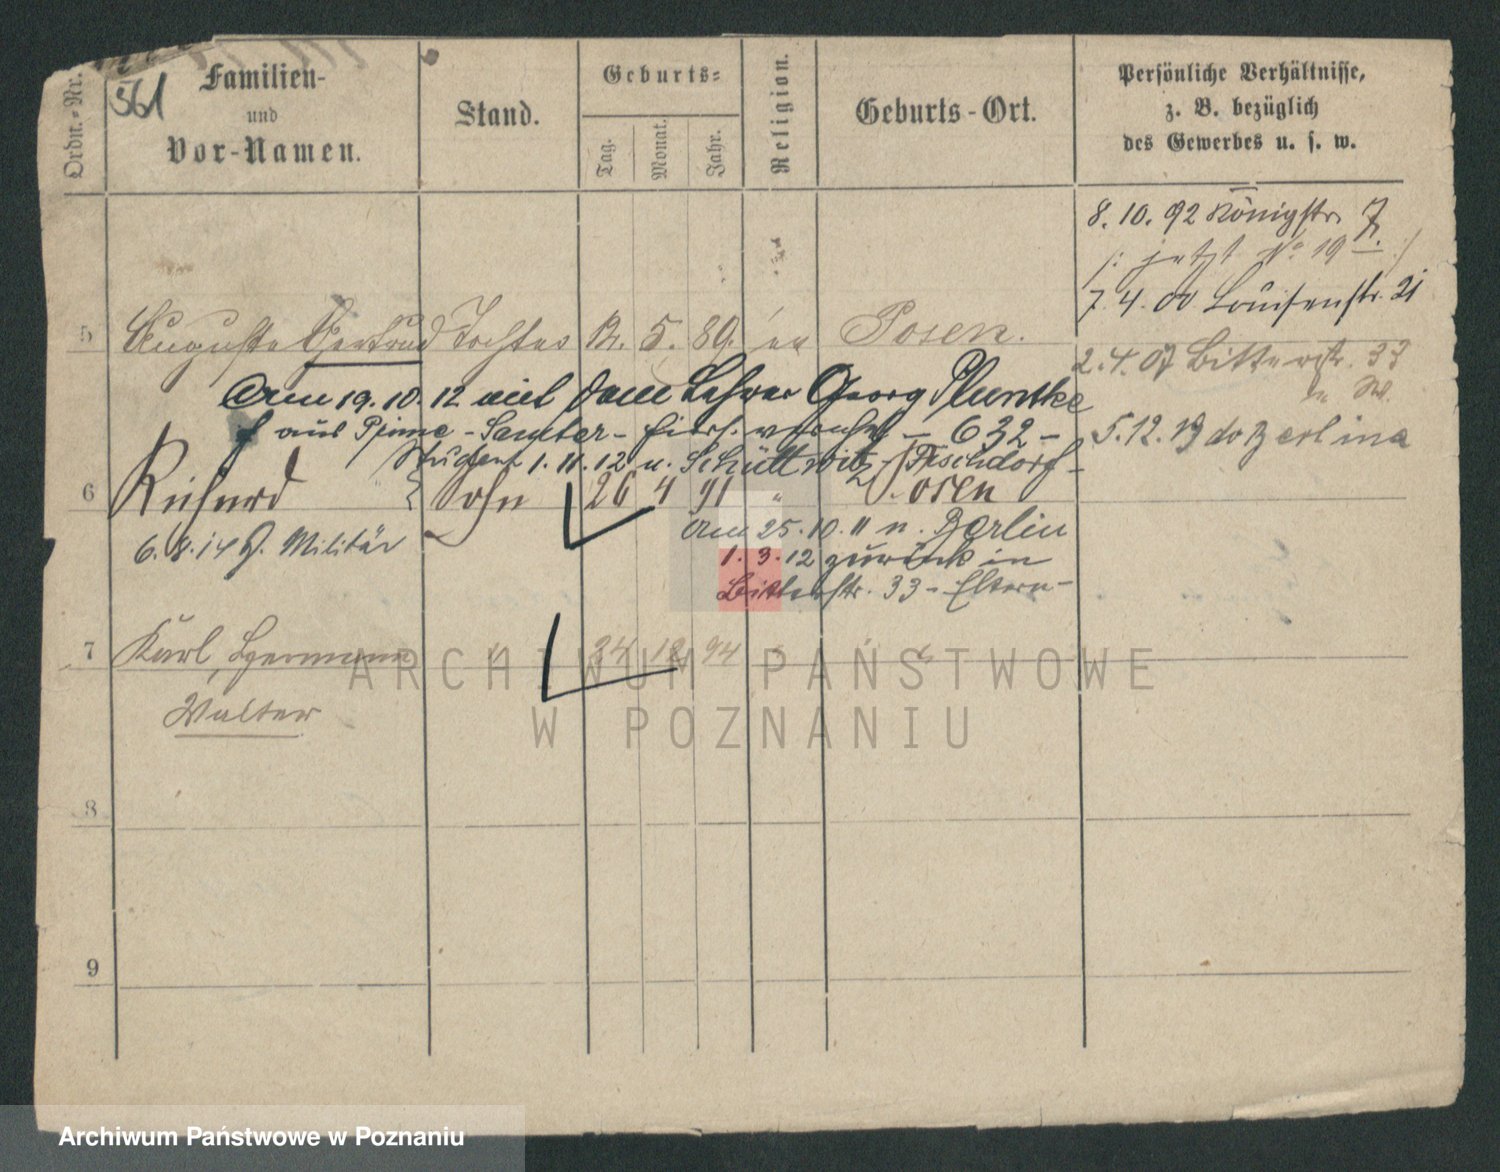 561
Ordn.-Nr.
Familien-
und
Vor-Namen.
Stand.
Geburts-
Tag.
Monat.
Jahr.
Religion.
Geburts-Ort.
Persönliche Verhältnisse,
z. B. bezüglich
des Gewerbes u. s. w.
8. 10. 92 Königstr. 7.
/: jetzt No 19 :/
7. 4. 00 Louisenstr. 21
5 Auguste Gertrud Tochter 5. 89. Posen.
2. 4. 07 Bitterstr. 33
Am 19. 10. 12 mit dem Lehrer Georg
aus Pinne - Samter - hiers. - 632 -
5. 12. 19
1. 11. 12 u.
6 Richard Sohn 26 4 91 " Posen
6. 8. 14 z. Militär
Am 25. 10. 11 n. Berlin
1. 3. 12 zurück in
Bitterstr. 33 - Eltern -
7 Karl, Hermann " 12 94 " "
Walter
8
9
ARCHIWUM PAŃSTWOWE
W POZNANIU
Archiwum Państwowe w Poznaniu